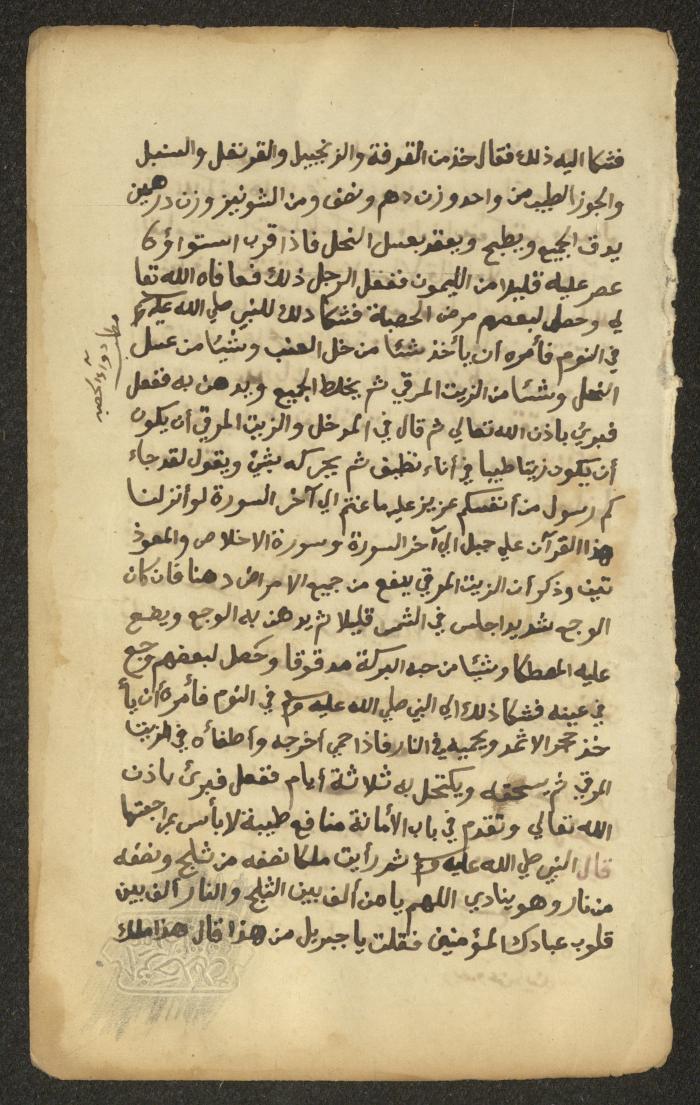 فشكا اليه ذلك فقال خذ من القرفة والزنجبيل والقرنفل والسنبل
والجوز الطيب من واحد وزن دهم ونصف ومن الشونيز وزن درهمين
يدق الجميع ويطبخ ويعقد بعسل النحل فاذا قرب استواؤه
عصر عليه قليلا من الليمون ففعل الرجل ذلك فعافاه الله تعا
لي وحصل لبعضهم مرض الحصبة فشكا ذلك للنبي صلي الله عليه وسلم
في النوم فأمره أن يأخذ شئا من خل العنب وشيئا من عسل
النحل وشئا من الزيت المرقي ثم يخلط الجميع ويدهن به ففعل
فبرئ باذن الله تعالي ثم قال في المدخل والزيت المرقي أن يكون
أن يكون زيتا طيبا في أناء نظيف ثم يحركه بشئ ويقول لقد جاء
كم رسول من أنفسكم عزيز عليه ما عنتم الي آخر السورة لو أنزلنا
هذا القرآن علي جبل الي آخر السورة وسورة الاخلاص والمعوذ
تين وذكر أن الزيت المرقي ينفع من جميع الامراض دهنا فان كان
الوجع شديدا جلس في الشمس قليلا ثم يدهن به الوجع ويضع
عليه المصطكا وشيئا من حبه البركة مدقوقا وحصل لبعضهم وجع
في عينه فشكا ذلك الي النبي صلي الله عليه وسلم في النوم فأمره أن يأ
خذ حجر الاثمد ويحميه في النار فاذا حمي أخرجه وأطفأه في الزيت
المرقي ثم يسحقه ويكتحل به ثلاثة أيام ففعل فبرئ باذن
الله تعالي وتقدم في باب الأمانة منافع طيبة لابأس بمراجعتها
قال النبي صلي الله عليه وسلم رأيت ملكا نصفه من ثلج ونصفه
من نار وهو ينادي اللهم يا من ألف بين الثلج والنار ألف بين
قلوب عبادك المؤمنين فقلت يا جبريل من هذا قال هذا ملك
مطلب
دواء الحصبه